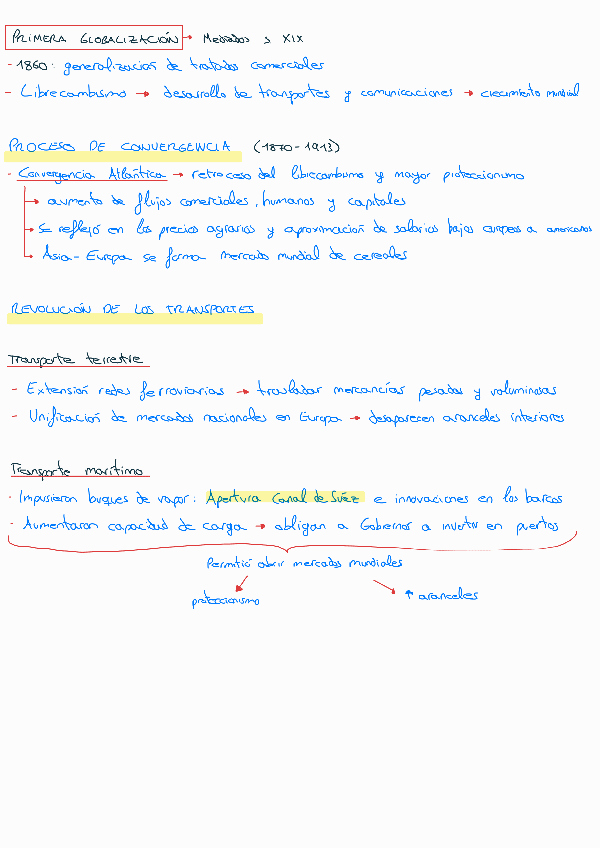 PRIMERA GLOBALIZACIÓN → Mediados s XIX
- 1860: generalización de tratados comerciales
- Librecambismo → desarrollo de transportes y comunicaciones → crecimiento mundial
PROCESO DE CONVERGENCIA (1870-1913)
- Convergencia Atlántica → retroceso del librecambismo y mayor proteccionismo
→ aumento de flujos comerciales, humanos y capitales
→ Se reflejó en los precios agrarios y aproximación de salarios bajos europeos a americanos
→ Asia-Europa se forma mercado mundial de cereales
REVOLUCIÓN DE LOS TRANSPORTES
Transporte terrestre
- Extensión redes ferroviarias → trasladar mercancías pesadas y voluminosas
- Unificación de mercados nacionales en Europa → desaparecen aranceles interiores
Transporte marítimo
- Impusieron buques de vapor: Apertura Canal de Suez e innovaciones en los barcos
- Aumentaron capacidad de carga → obligan a Gobernar a invertir en puertos
Permitió abrir mercados mundiales
proteccionismo ↑ aranceles